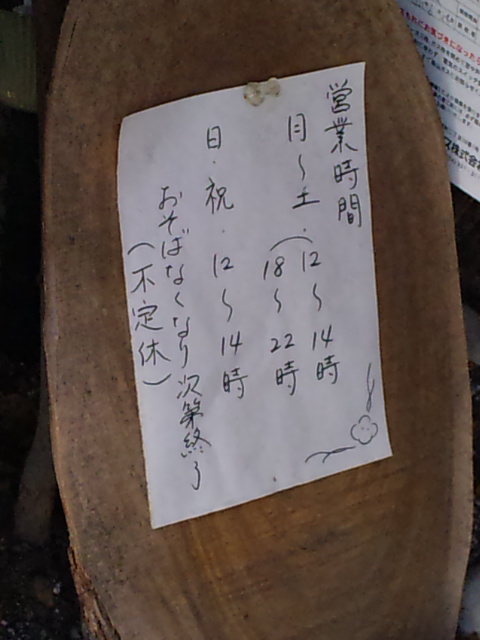 営業時間
月〜土 12〜14時
18〜22時
日・祝 12〜14時
おそばなくなり次第終了
(不定休)